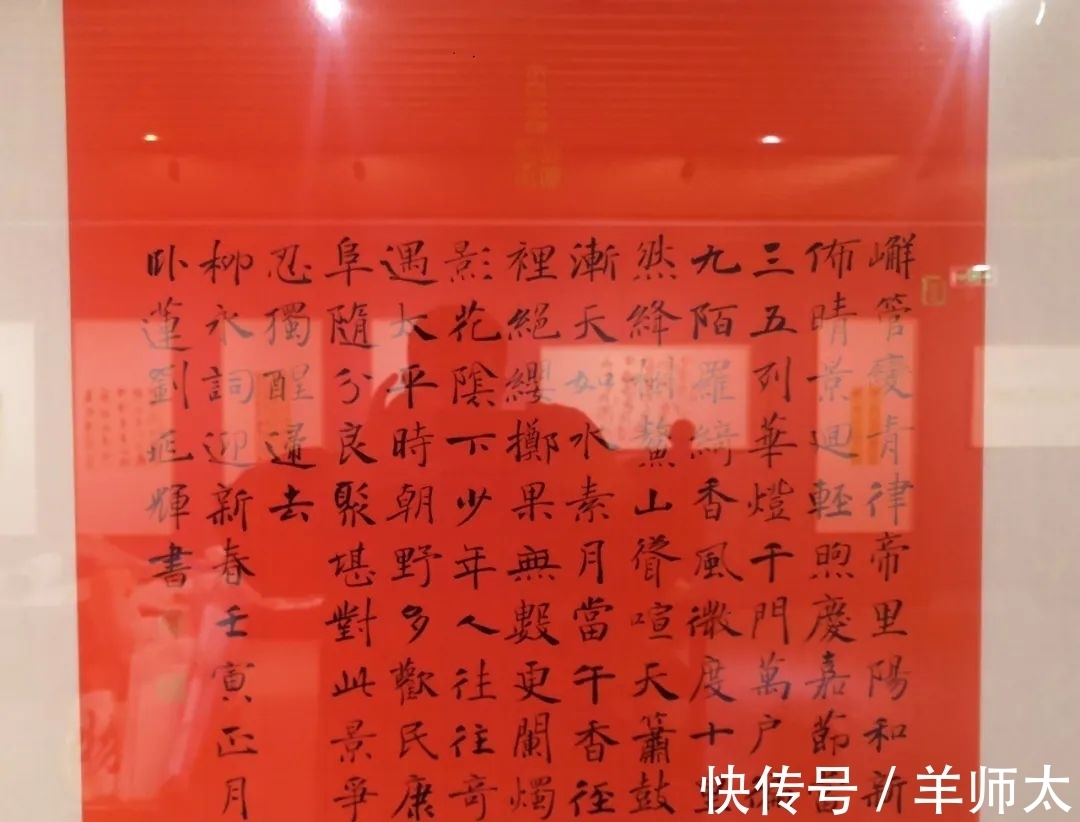 嶰管變青律帝里陽和新
佈晴景迴輕煦慶嘉節當
三五列華燈千門萬戶
九陌羅綺香風微度十里
然絳樹鰲山聳喧天簫鼓
漸天如水素月當午香徑
裡絕纓擲果無數更闌燭
影花陰下少年人往往奇
遇太平時朝野多歡民康
阜隨分良聚堪對此景爭
忍獨醒歸去
柳永詞迎新春壬寅正月
卧蓮劉正輝書
快传号 / 羊师太